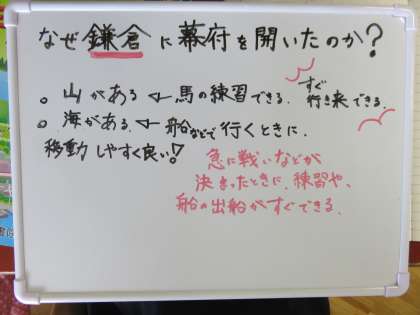 なぜ鎌倉に幕府を開いたのか?
。山がある ← 馬の練習できる。すぐ行き来できる。
。海がある。← 船などで行くときに、
移動しやすく良い!
急に戦いなどが
決まったときに、練習や、
船の出船がすぐできる。